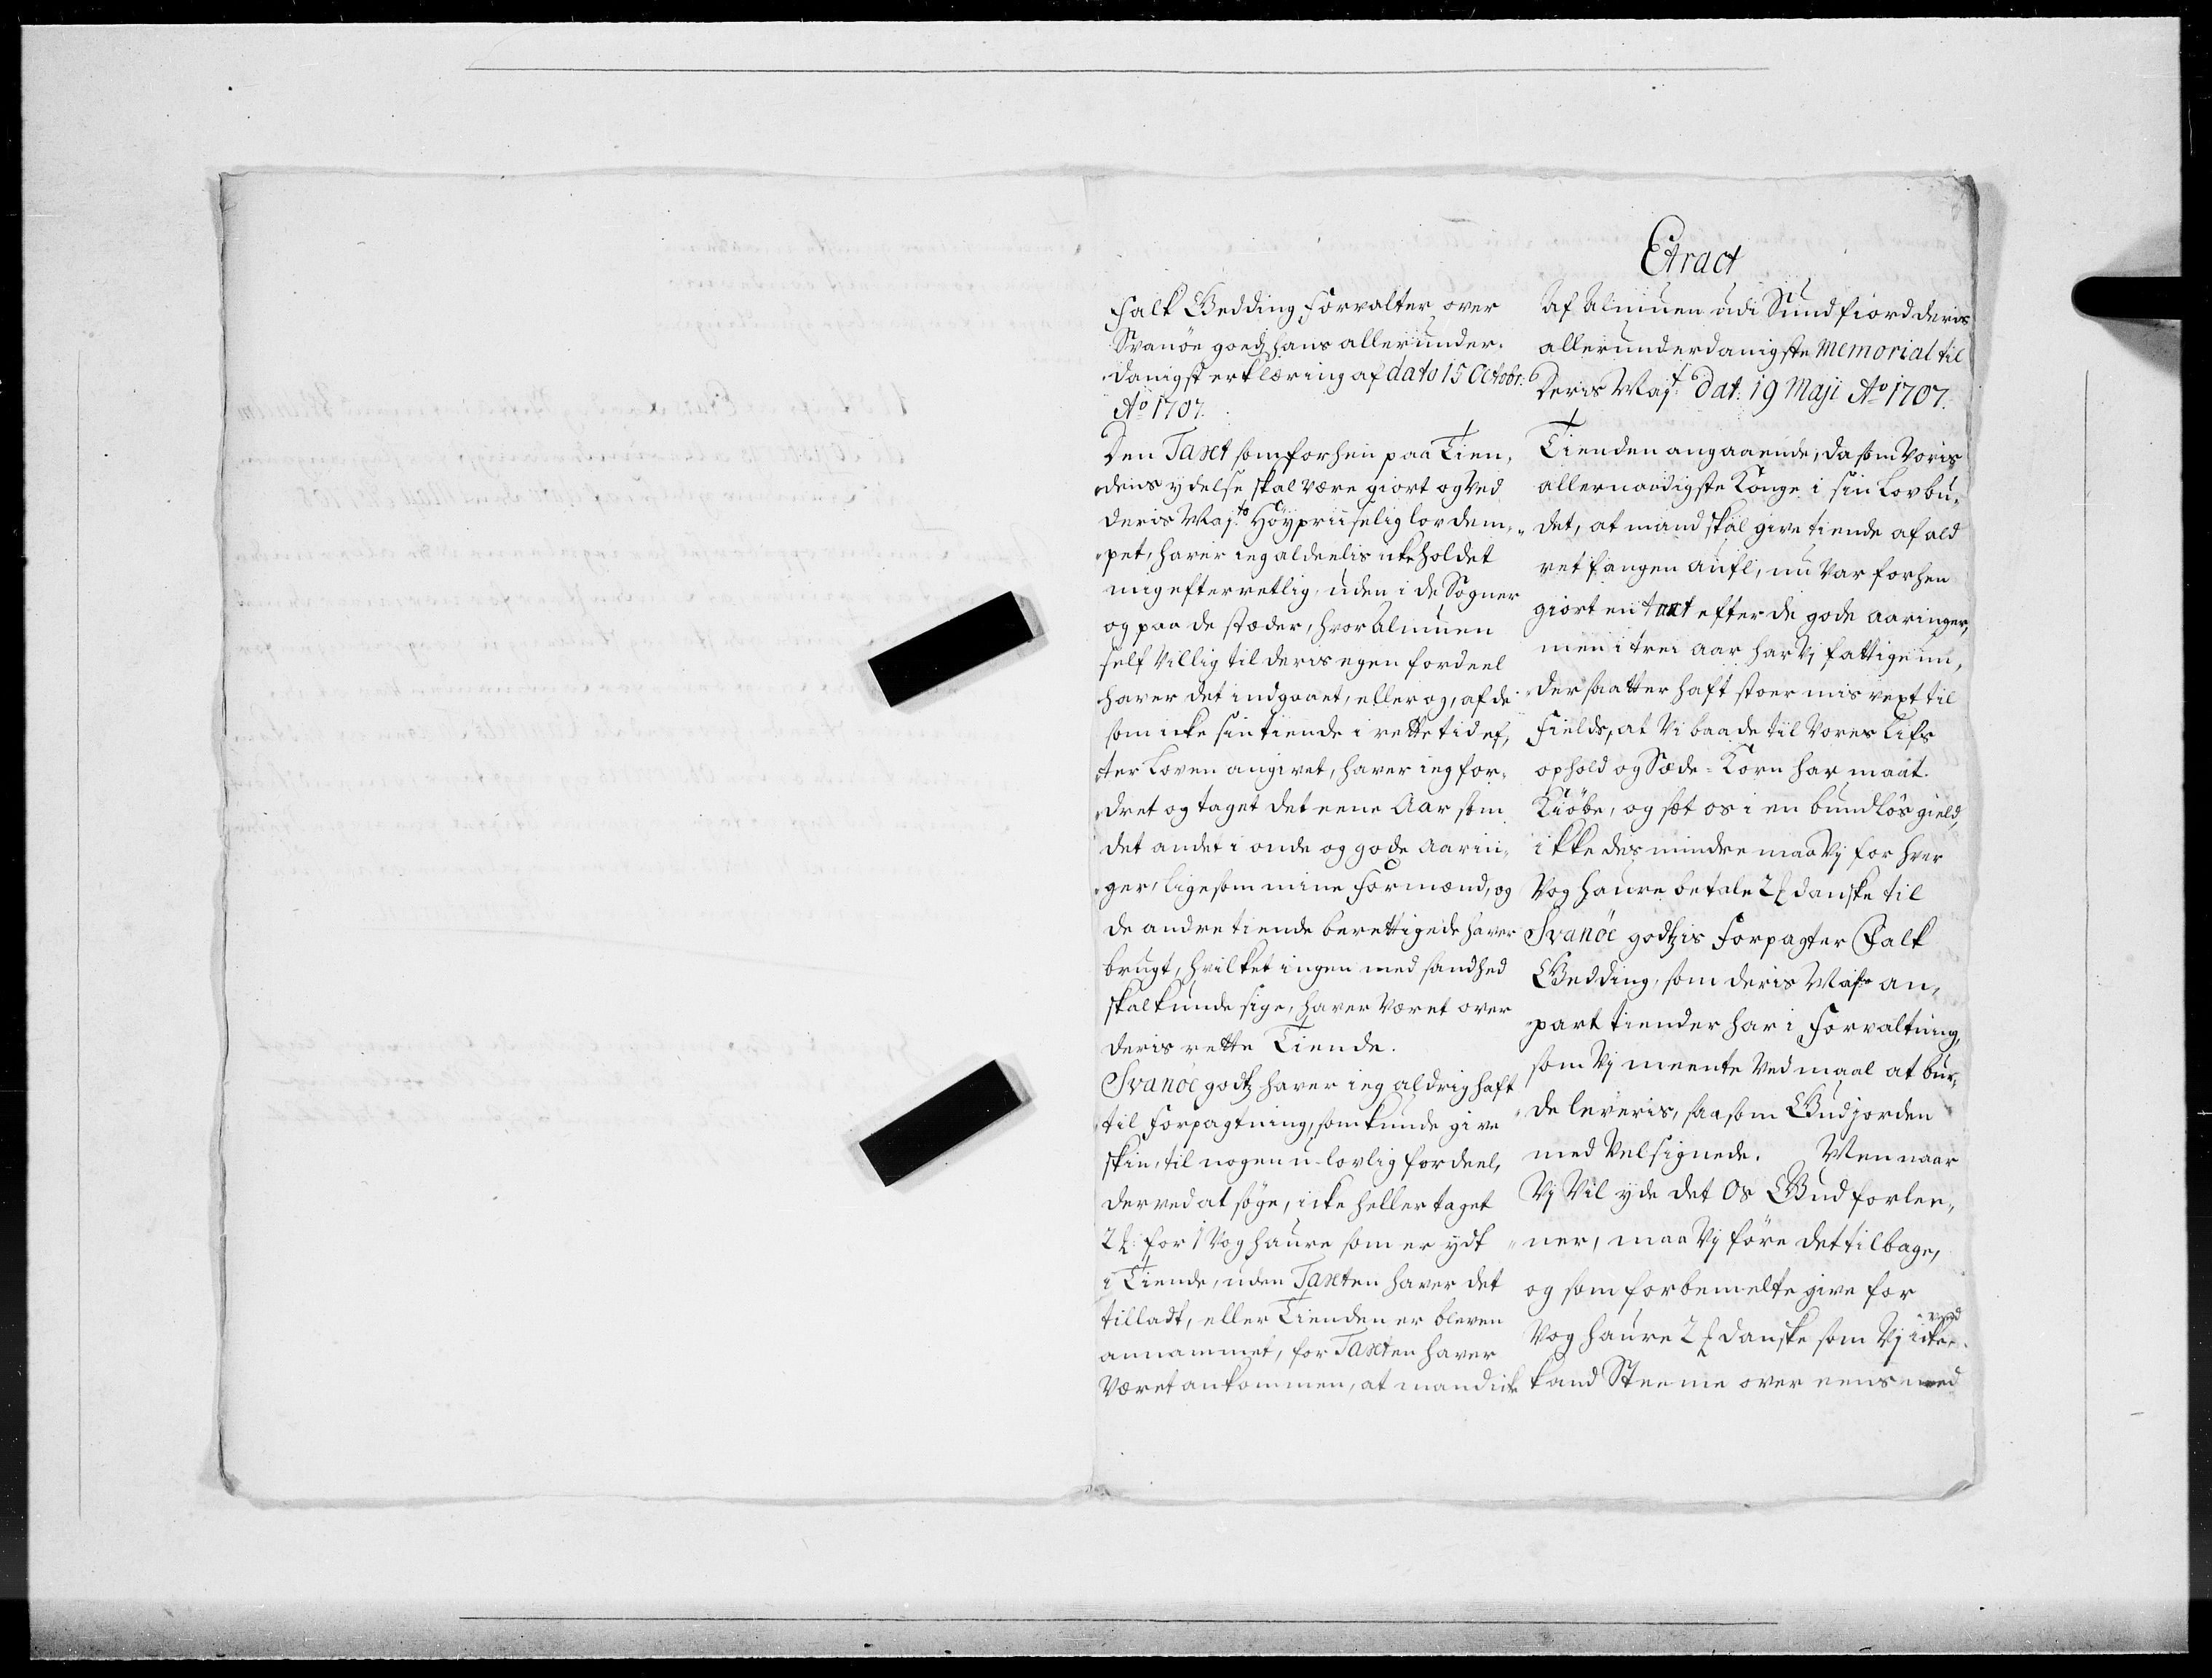 Extract
Falk Gedding Forvalter over
Svanöe goedz hans allerunder-
danigst erklæring af dato 15 Octobr:
Ao 1707.
Den Taxt som forhen paa Tien-
dens ydelse skal være giort og ved
deris Maj.ts Høypriiselig lov dem-
pet, haver ieg aldeelis icke holdet
mig efterretlig, uden i de Sogner
og paa de stæder, hvor Almuen
self villig til deris egen fordeel
haver det indgaaet, eller og, af de
som icke sin tiende i rette tid ef-
ter Loven angivet, haver ieg for-
dret og taget det eene Aar som
det andet i onde og gode Aarin-
ger, ligesom mine Formænd, og
de andre tiende berettigede haver
brugt, hvilket ingen med sandhed
skal kunde sige, haver været over
deris rette Tiende.
Svanöe godtz haver ieg aldrig haft
til Forpagtning, som kunde give
skin, til nogen u-lovlig fordeel,
derved at søge, icke heller taget
2 ℔: for 1 Vog haure som er ydt
i Tiende, uden Taxten haver det
tilladt, eller Tienden er bleven
annammet, for Taxten haver
været ankommen, at mand icke
Af Almuen udi Sundfiord deris
allerunderdanigste Memorial til
Deris Majt. dat: 19 Maji Ao 1707.
Tienden angaaende, da som voris
allernaadigste Konge i sin Lov bu-
det, at mand skal give tiende af ald
ret fangen aufl, nu var forhen
giort en taxt efter de gode aaringer,
men i trei aar har vj fattige un-
dersaatter haft stoer misvext til
Fields, at vi baade til vores Lifs
ophold og Sæde-Korn har maat
Kiøbe, og sæt os i en bundløs gield,
ikke desmindre maa vj for hver
Vog haure betale 2 ℔ danske til
Svanöe godtzis Forpagter Falk
Gedding, som deris Majts an-
part tiender har i Forvaltning,
som vj meente ved maal at bur-
de leveris, saasom Gud jorden
med velsignede. Men naar
Vj vil yde det Os Gud forlee-
ner, maa vj føre det tilbage,
og som forbemelte give for
Vog haure 2 ℔ danske som vj icke
kand Stemme over eens med